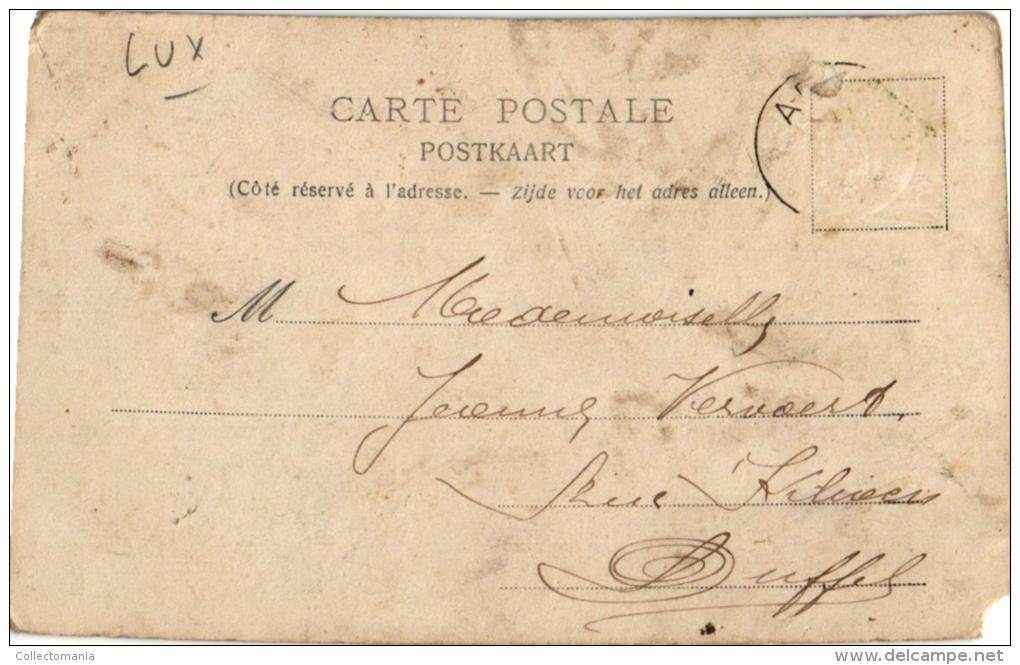 LUX
CARTE POSTALE
POSTKAART
(Côté réservé à l'adresse. — Zijde voor het adres alleen.)
M Mademoiselle
Jeanne Vervoert
Rue Kiliaen
Duffel
Collectomania
delcampe.net